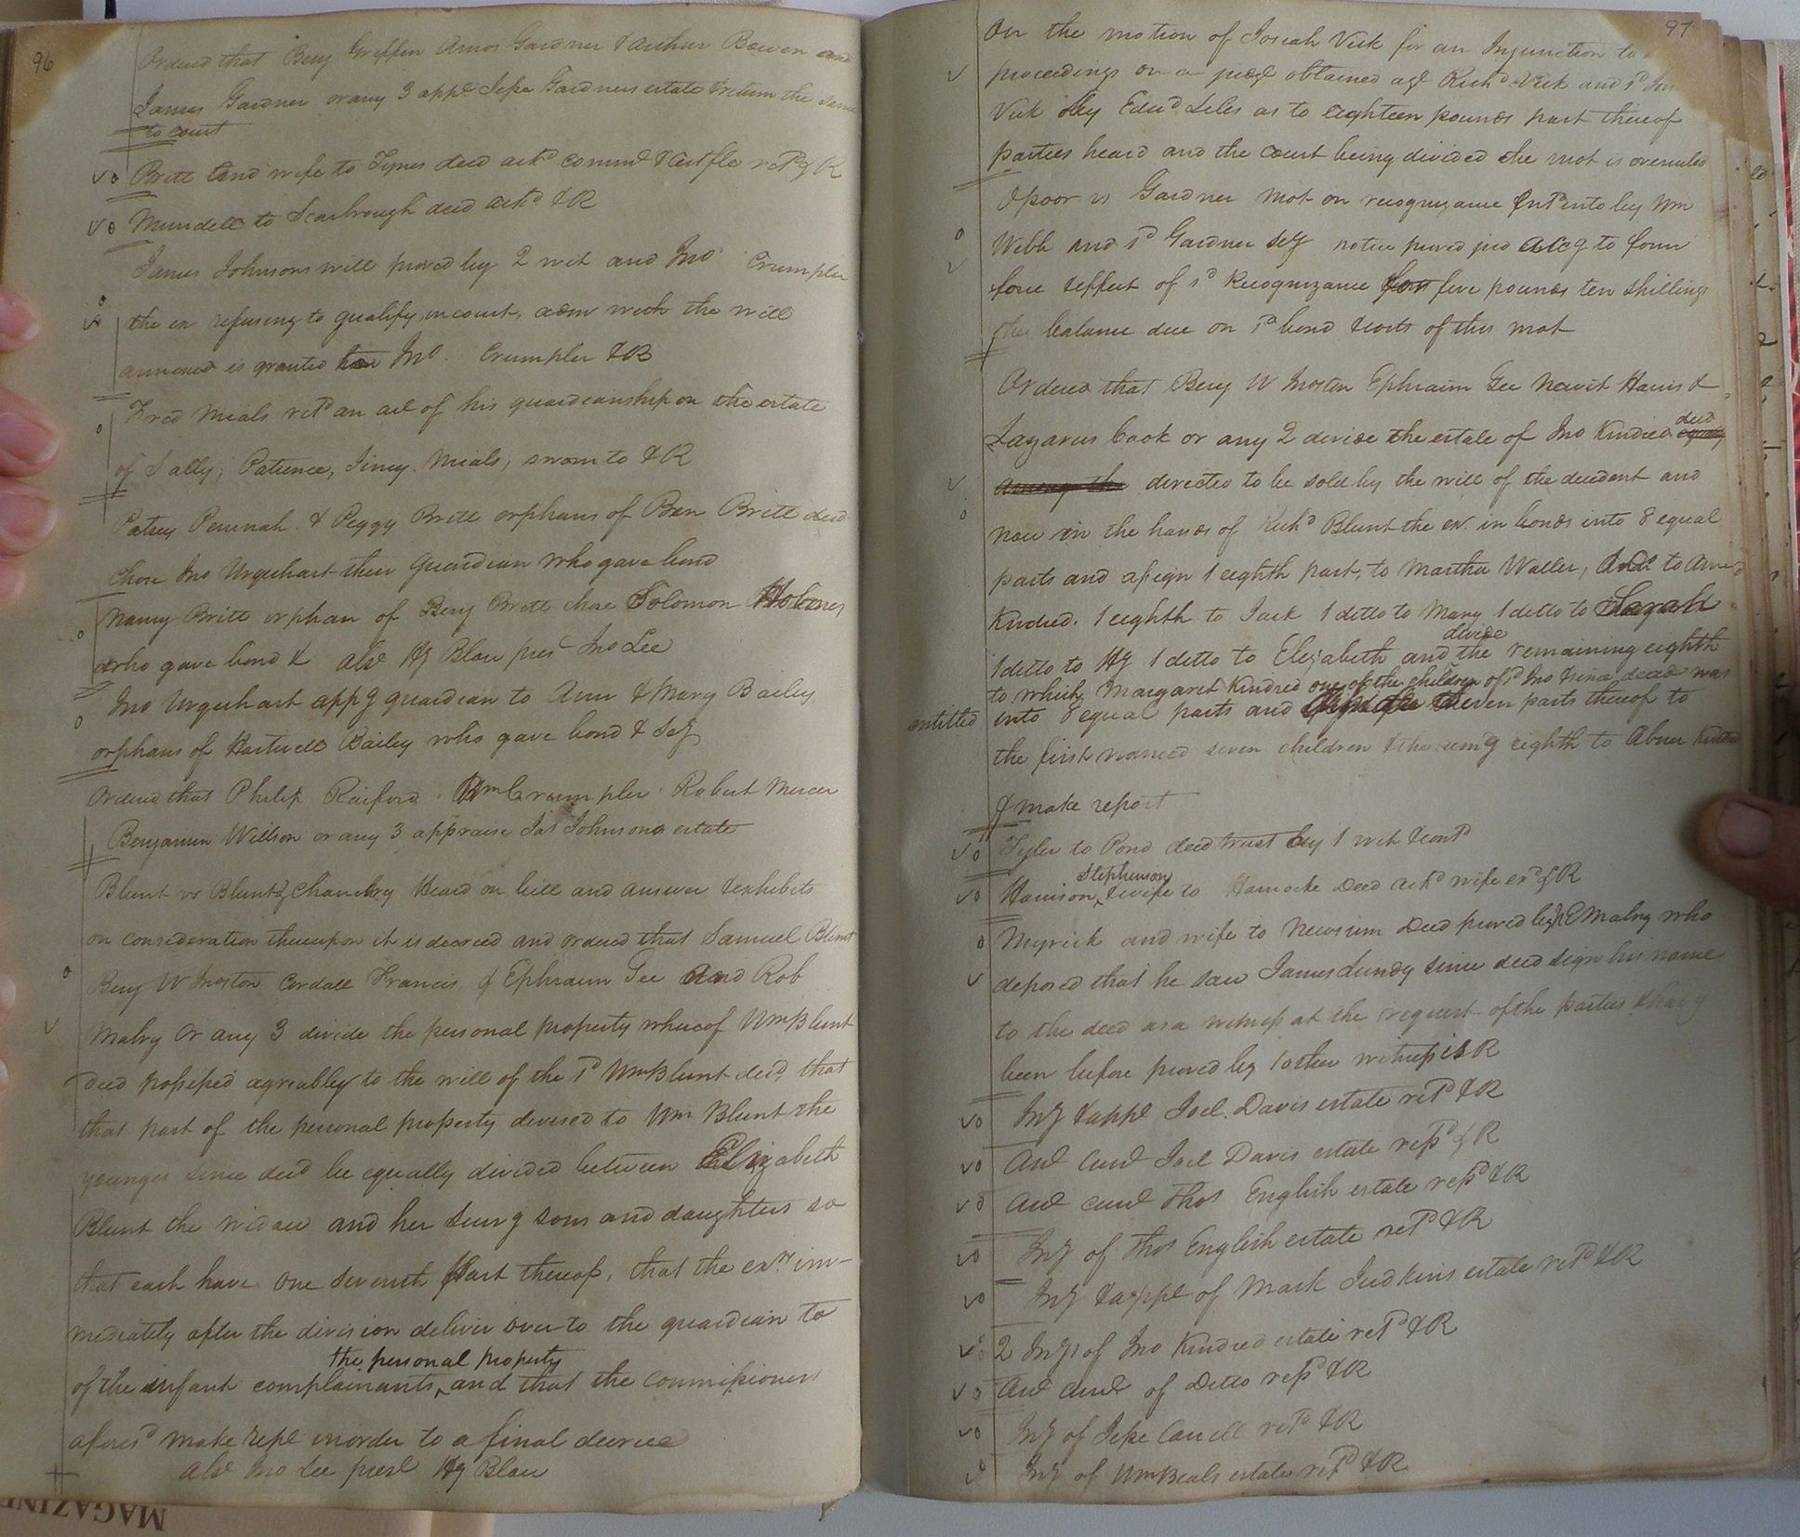 96
Ordered that Benj Griffin Amos Gardner & Arthur Bowen and
James Gardner or any 3 appe Jesse Gardners estate & return the same
to court
Britt and wife to Tynes deed ackd commn & certfte retd & R
Mundell to Scarbrough deed ackd & R
James Johnsons will proved by 2 wit and Jno Crumpler
the ex refusing to qualify in court, adm with the will
annexed is granted Jno Crumpler & R
Fred Meals retd an acct of his guardianship on the estate
of Sally, Patience, Jincy Meals, sworn to & R
Patsey Peninah & Peggy Britt orphans of Ben Britt decd
chose Jno Urquhart their guardian who gave bond
Nancy Britt orphan of Benj Britt chose Solomon Holmes
who gave bond & abst Hy Blow prest Jno Lee
Jno Urquhart appg guardian to Ann & Mary Bailey
orphans of Hartwell Bailey who gave bond & Sey
Ordered that Philip Raiford Wm Crumpler Robert Mercer
Benjamin Willson or any 3 appraise Jas Johnsons estate
Blunt vs Blunt chancery Heard on bill and answer & exhibits
on consideration thereupon it is decreed and ordered that Samuel Blunt
Benj W Moston Cordall Francis & Ephraim Gee And Rob
Mabry or any 3 divide the personal property whereof Wm Blunt
decd possessed agreeably to the will of the sd Wm Blunt decd, that
that part of the personal property devised to Wm Blunt the
younger since decd be equally divided between Elizabeth
Blunt the widow and her survg sons and daughters so
that each have one seventh part thereof, that the exrs im-
mediately after the division deliver over to the guardian to
the personal property
of the infant complainants, and that the commissioners
aforesd make rept in order to a final decree
abst Jno Lee prest Hy Blow
MAGAZINE
97
On the motion of Josiah Vick for an Injunction to
proceedings on a judgt obtained agt Richd Vick and sd
Vick by Edwd Liles as to eighteen pounds part thereof
parties heard and the court being divided the mot is overruled
Opoor vs Gardner mot on recognizance entd into by Wm
Webb and sd Gardner Sey notice proved jud accg to form
force & effect of sd Recognizance for five pounds ten shillings
the balance due on sd bond & costs of this mot
Ordered that Benj W Moston Ephraim Gee Newit Harris &
Lazarus Cook or any 2 divide the estate of Jno Kindred decd
among the directed to be sold by the will of the decedent and
now in the hands of Richd Blunt the ex. in bonds into 8 equal
parts and assign 1 eighth part, to Martha Waller, to
Kindred. 1 eighth to Jack 1 ditto to Mary 1 ditto to Sarah
divide
1 ditto to Hy 1 ditto to Elizabeth and the remaining eighth
to which Margaret Kindred one of the children of sd Jno decd was
entitled into 8 equal parts and seven parts thereof to
the first named seven children & the remg eighth to Abner Kindred
& make report
Tyler to Pond deed trust by 1 wit & contd
Stephenson
Harrison & wife to Hancocke Deed ackd wife exd & R
Myrick and wife to Newsum Deed proved by E Mabry who
deposed that he saw James Lundy since decd sign his name
to the deed as a witness at the request of the parties & havg
been before proved by 1 other witness is R
Invy & appt Joel Davis estate retd & R
Acct curt Joel Davis estate retd & R
Acct curt Thos English estate retd & R
Invy of Thos English estate retd & R
Invy & appt of Mark Judkins estate retd & R
2 Invys of Jno Kindred estate retd & R
Acct curt of Ditto retd & R
Invy of Jesse Carrell retd & R
Invy of Wm Beals estates retd & R